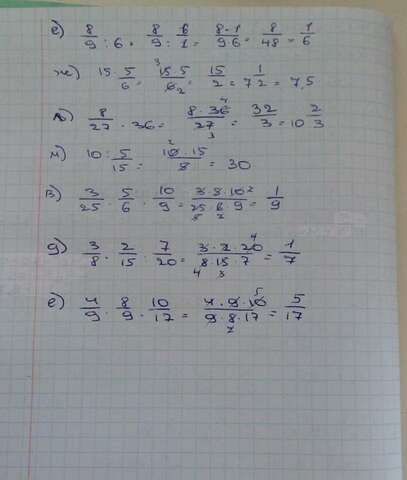 е) 8/9 : 6 = 8/9 : 6/1 = 8·1/9·6 = 8/48 = 1/6
ж) 15 · 5/6 = 15·5/6 = 15/2 = 7 1/2 = 7,5
8/27 · 36 = 8·36/27 = 32/3 = 10 2/3
м) 10 : 5/15 = 10·15/8 = 30
в) 3/25 · 5/6 · 10/9 = 3·5·10/25·6·9 = 1/9
g) 3/8 · 2/15 · 7/20 = 3·2·20/8·15·7 = 1/7
е) 4/9 · 8/9 · 10/17 = 4·9·10/9·8·17 = 5/17